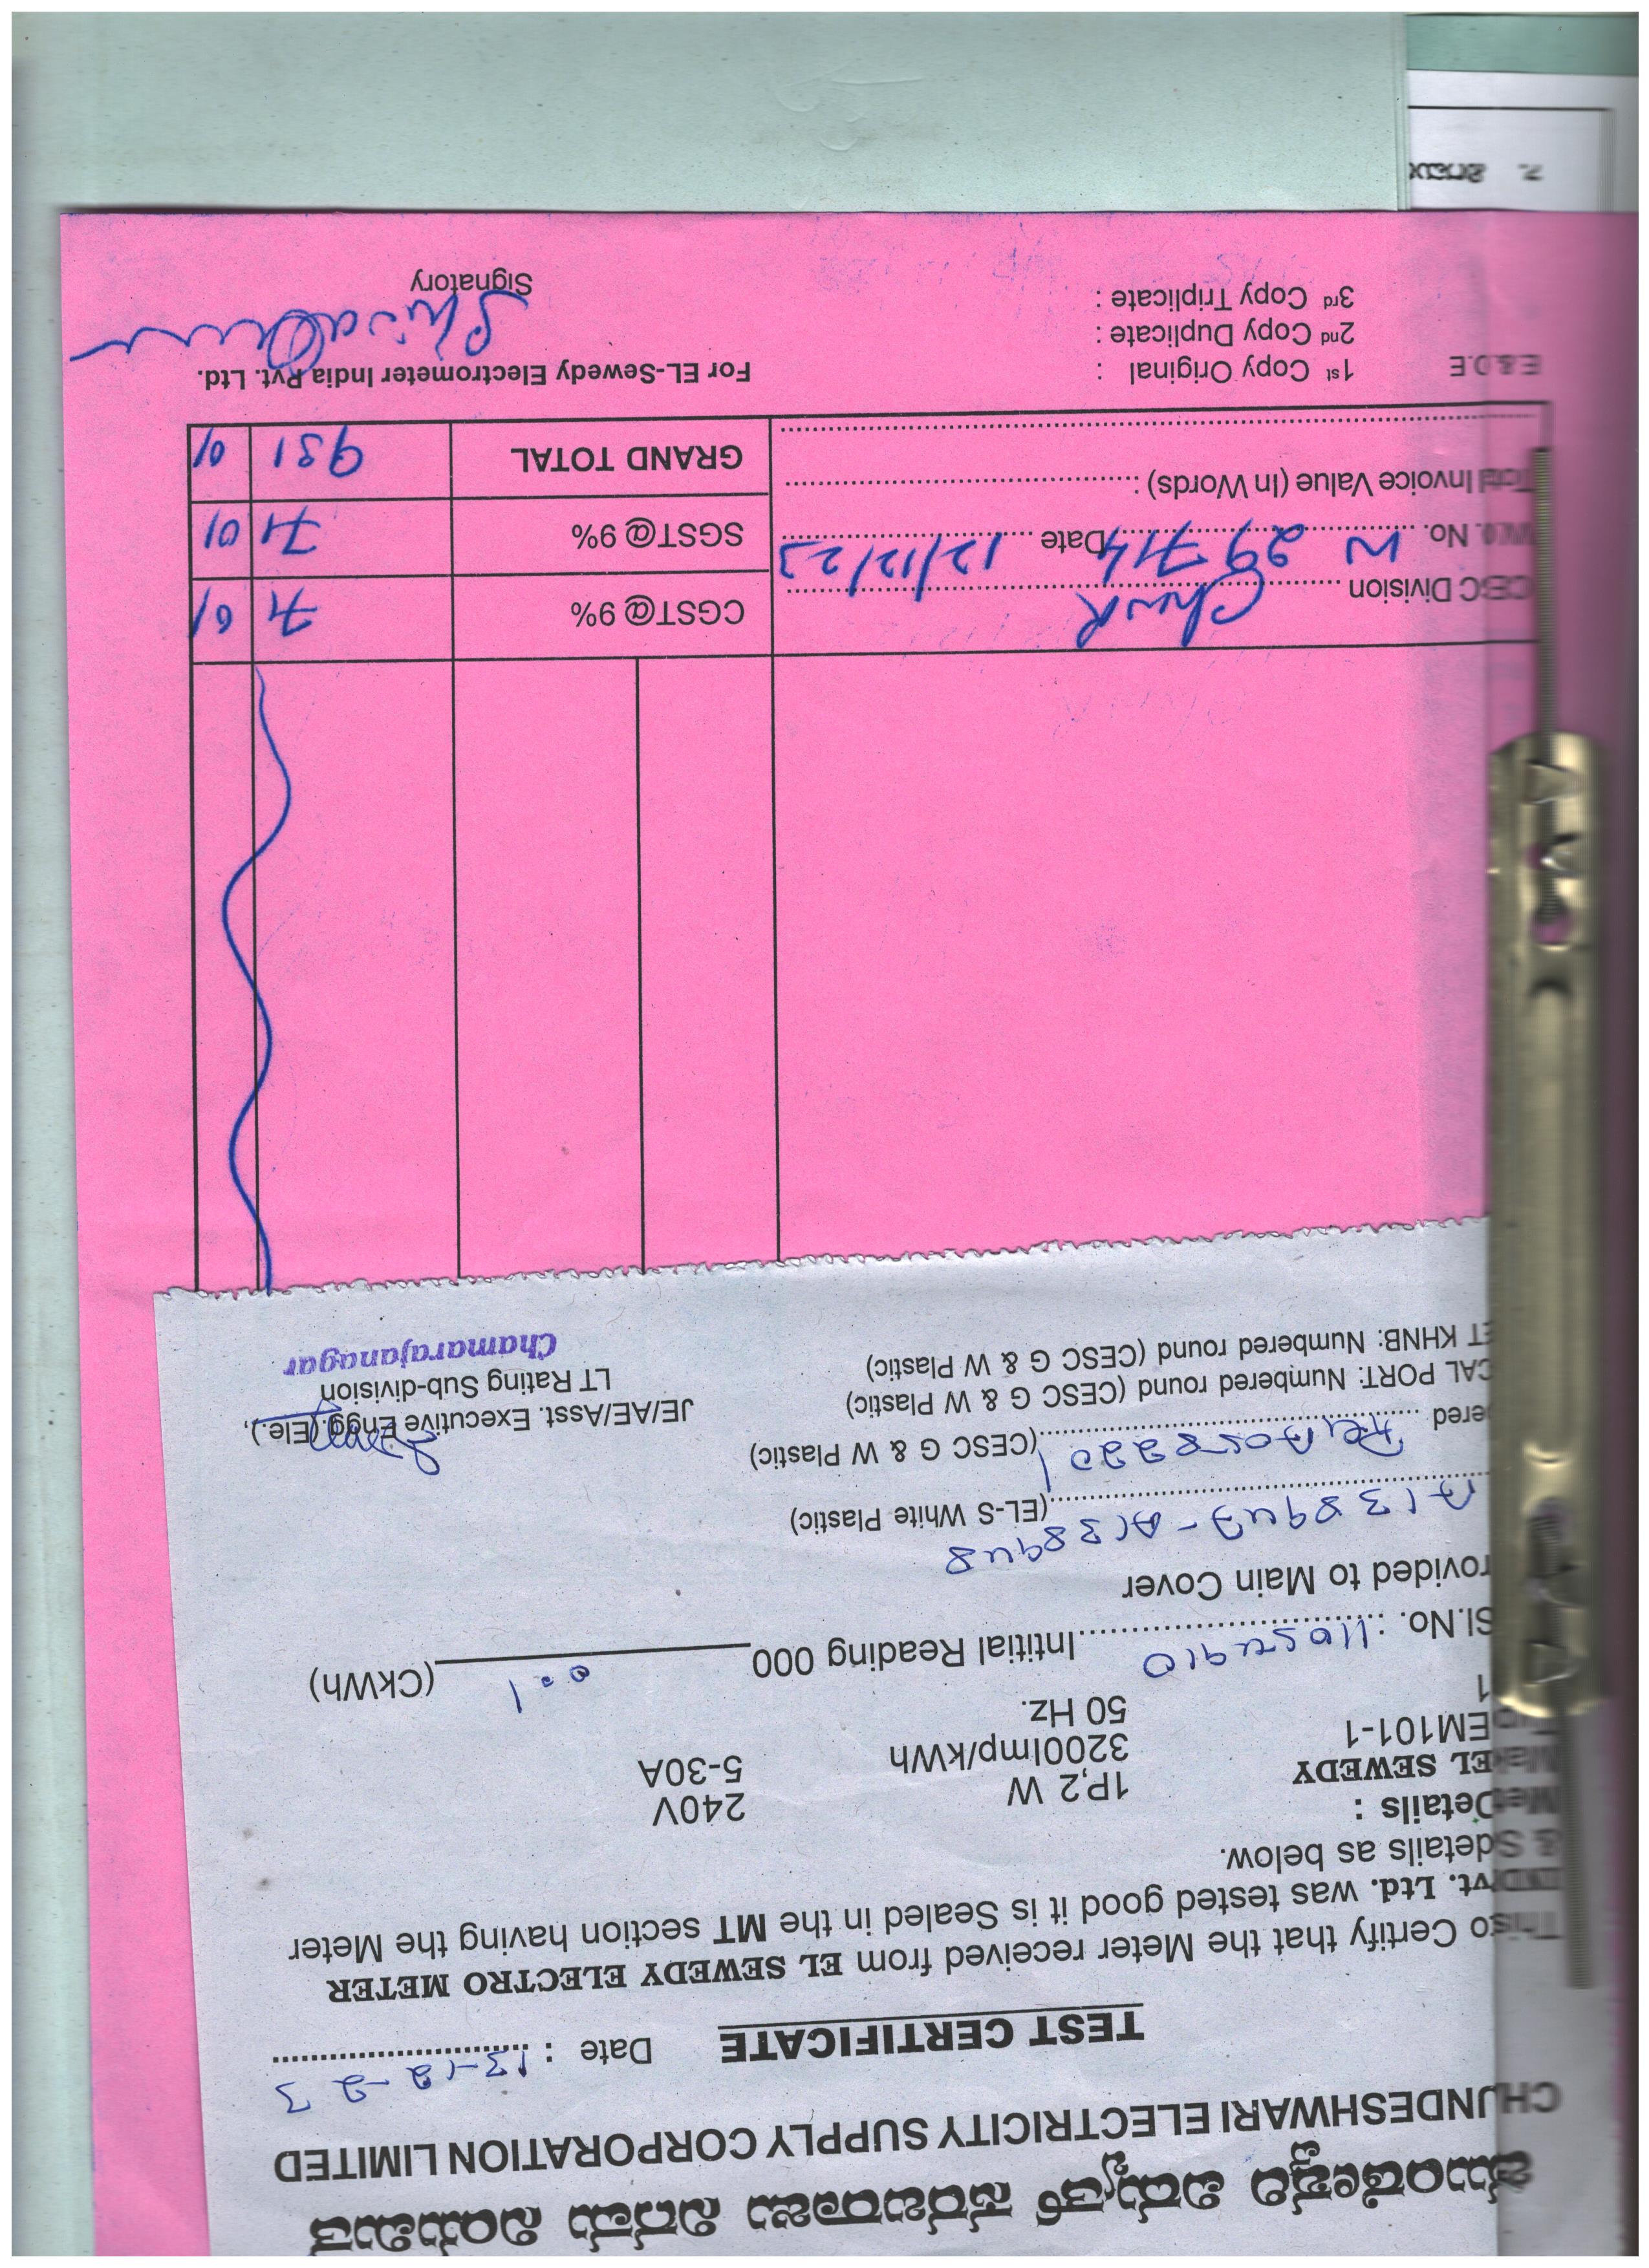 ಚಾಮುಂಡೇಶ್ವರಿ ವಿದ್ಯುತ್ ಸರಬರಾಜು ನಿಗಮ ನಿಯಮಿತ
CHUNDESHWARI ELECTRICITY SUPPLY CORPORATION LIMITED
TEST CERTIFICATE Date : 13-12-23
o Certify that the Meter received from EL SEWEDY ELECTRO METER
vt. Ltd. was tested good it is Sealed in the MT section having the Meter
details as below.
Details :
EL SEWEDY 1P,2 W 240V
EM101-1 3200Imp/kWh 5-30A
1 50 Hz.
Sl.No. : 11054910 Intitial Reading 000 0.1 (CkWh)
rovided to Main Cover
A138947-A138948 (EL-S White Plastic)
bered (CESC G & W Plastic)
CAL PORT: Numbered round (CESC G & W Plastic)
ET KHNB: Numbered round (CESC G & W Plastic)
JE/AE/Asst. Executive Engg.(Ele.),
LT Rating Sub-division
Chamarajanagar
CESC Division CGST@ 9% 71 01
No. W 29714 Date 12/12/23 SGST@ 9% 71 01
Total Invoice Value (In Words) : GRAND TOTAL 931 01
E & O.E
1st Copy Original :
2nd Copy Duplicate :
3rd Copy Triplicate :
For EL-Sewedy Electrometer India Pvt. Ltd.
Signatory